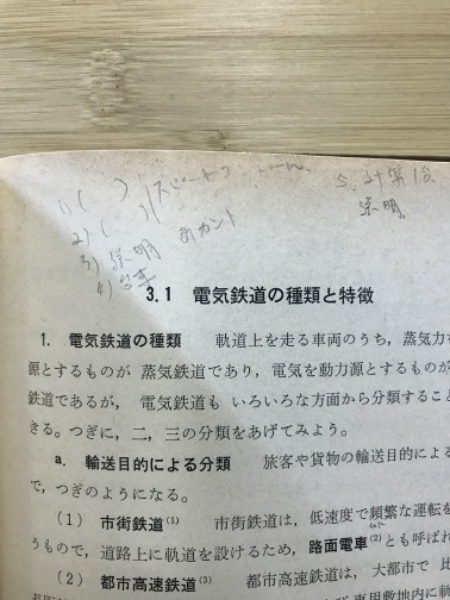 1) ( )
2) (
3) 照明
4) 台車
3) スピート
カント
照明
3.1 電気鉄道の種類と特徴
1. 電気鉄道の種類 軌道上を走る車両のうち，蒸気力を
源とするものが 蒸気鉄道であり，電気を動力源とするものが
鉄道であるが， 電気鉄道も いろいろな方面から分類すること
きる。つぎに，二，三の分類をあげてみよう。
a. 輸送目的による分類 旅客や貨物の輸送目的によ
で，つぎのようになる。
(1) 市街鉄道(1) 市街鉄道は，低速度で頻繁な運転を
うもので，道路上に軌道を設けるため，路面電車(2)とも呼ばれ
(2) 都市高速鉄道(3) 都市高速鉄道は，大都市で 比
専用敷地内に